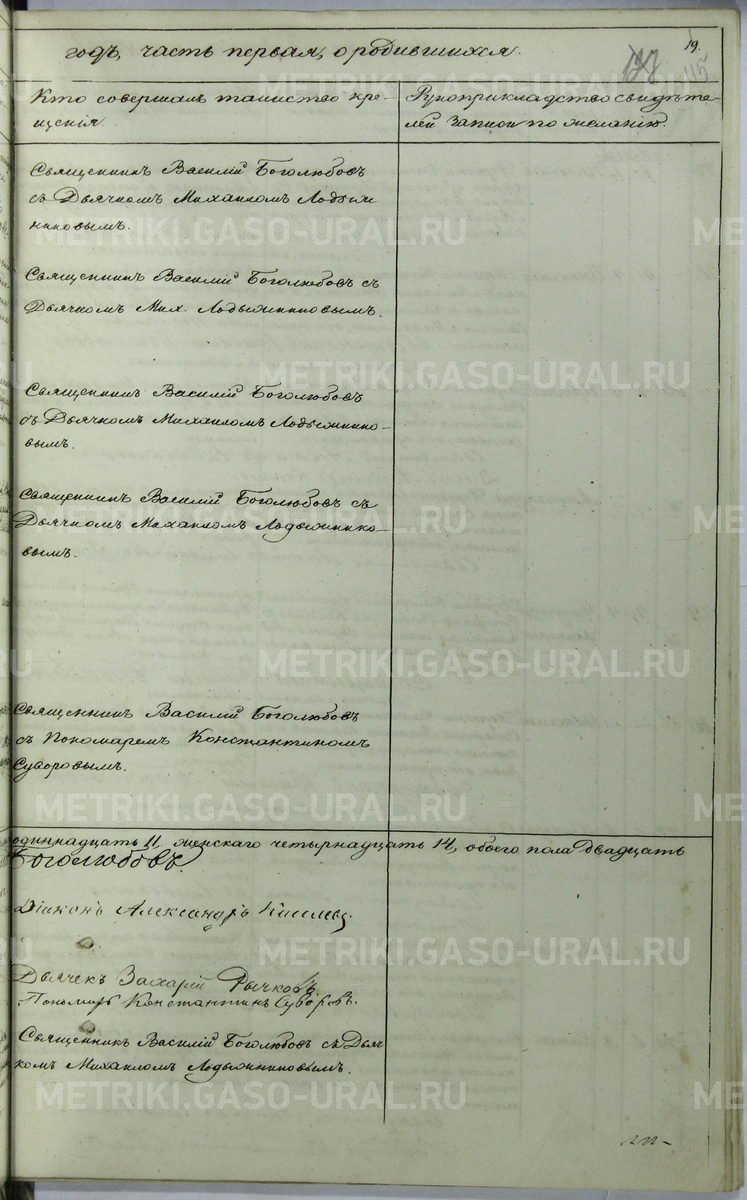 годъ, часть первая, о родившихся.
19.
115
Кто совершалъ таинство кре-
щенія.
Рукоприкладство свидѣте-
лей записи по желанію.
Священникъ Василій Боголюбовъ
съ Дьячкомъ Михаиломъ Лодыж
никовымъ.
Священникъ Василій Боголюбовъ съ
Дьячкомъ Мих. Лодыжниковымъ.
Священникъ Василій Боголюбовъ
съ Дьячкомъ Михаиломъ Лодыжнико-
вымъ.
Священникъ Василій Боголюбовъ съ
Дьячкомъ Михаиломъ Лодыжнико-
вымъ.
Священникъ Василій Боголюбовъ
съ Пономаремъ Константиномъ
Суворовымъ.
одиннадцать 11, женскаго четырнадцать 14, обоего пола двадцать
Боголюбовъ.
Діаконъ Александръ
Дьячекъ Захарій Рычковъ
Пономарь Константинъ Суворовъ.
Священникъ Василій Боголюбовъ съ Дьяч
комъ Михаиломъ Лодыжниковымъ.
METRIKI.GASO-URAL.RU